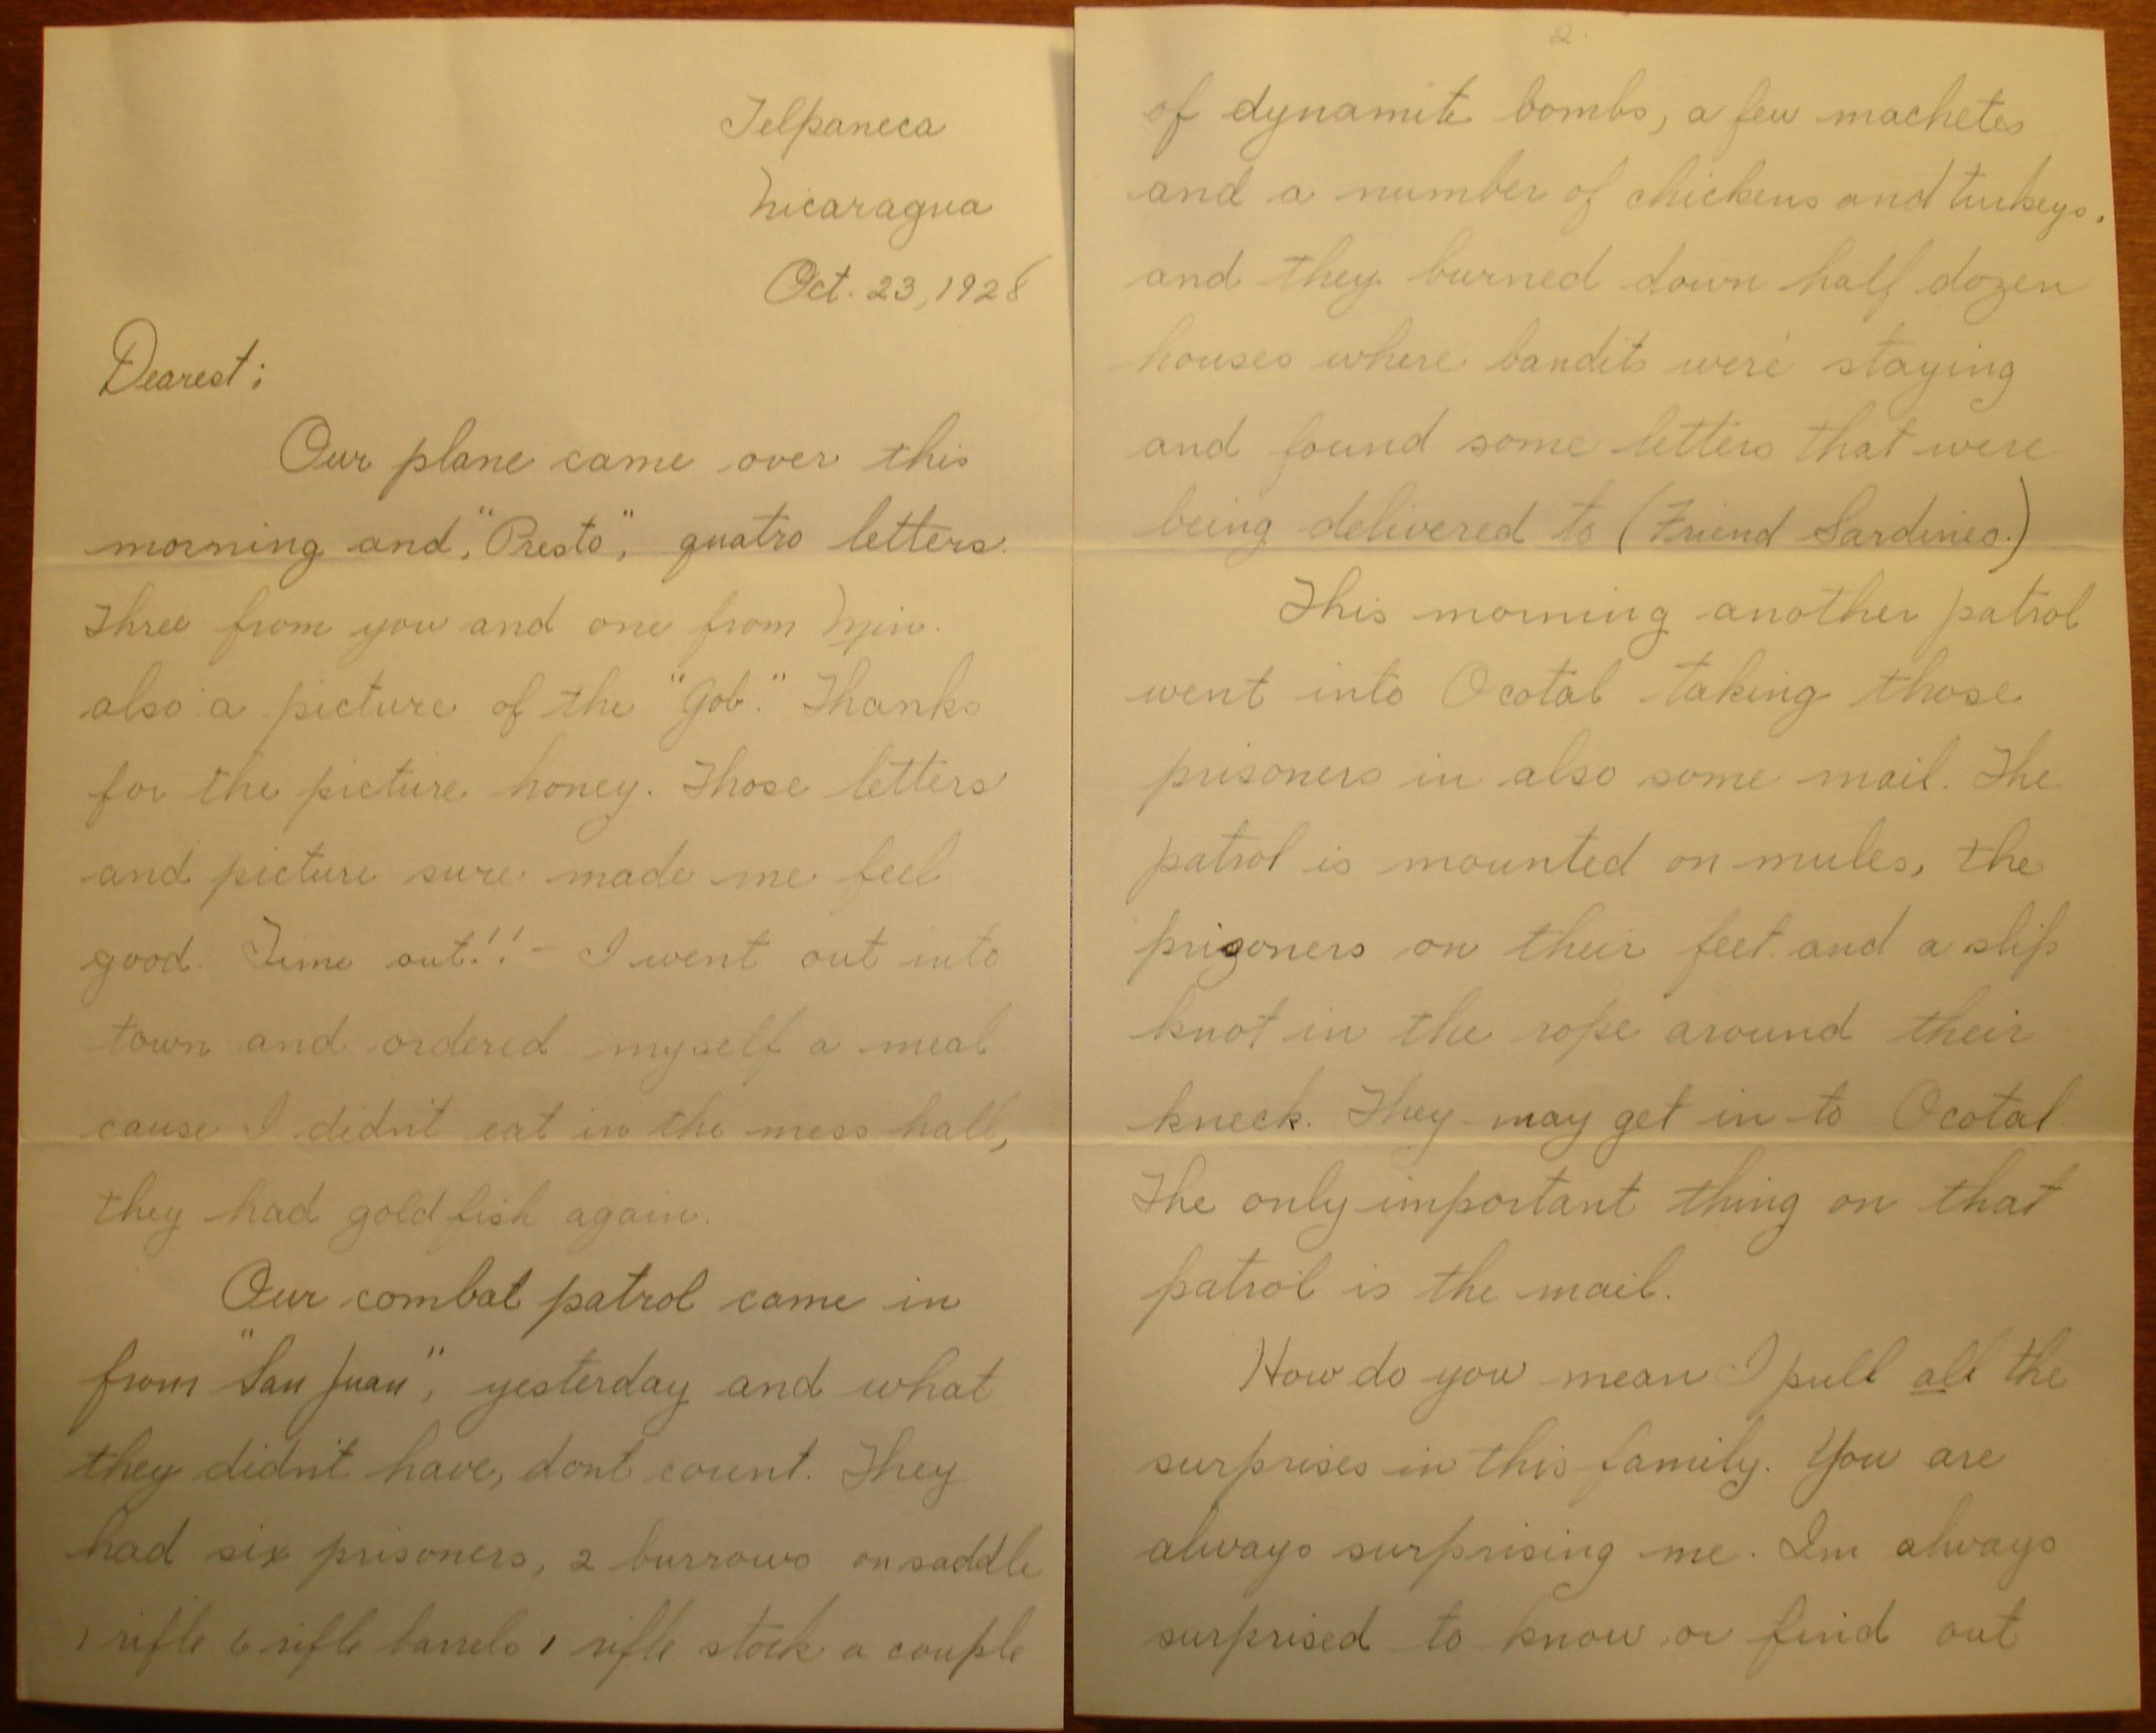 Telpaneca
Nicaragua
Oct. 23, 1928
Dearest;
Our plane came over this
morning and, "Presto", quatro letters.
Three from you and one from Min.
also a picture of the "Gob." Thanks
for the picture honey. Those letters
and picture sure made me feel
good. Time out!! - I went out into
town and ordered myself a meal
cause I didn't eat in the mess hall,
they had gold fish again.
Our combat patrol came in
from "San Juan", yesterday and what
they didn't have, dont count. They
had six prisoners, 2 burrows on saddle
1 rifle 6 rifle barrels 1 rifle stock a couple
2.
of dynamite bombs, a few machetes
and a number of chickens and turkeys.
and they burned down half dozen
houses where bandits were staying
and found some letters that were
being delivered to (Friend Sardines.)
This morning another patrol
went into Ocotal taking those
prisoners in also some mail. The
patrol is mounted on mules, the
prisoners on their feet and a slip
knot in the rope around their
kneck. They may get in to Ocotal
The only important thing on that
patrol is the mail.
How do you mean I pull all the
surprises in this family. You are
always surprising me. Im always
surprised to know or find out